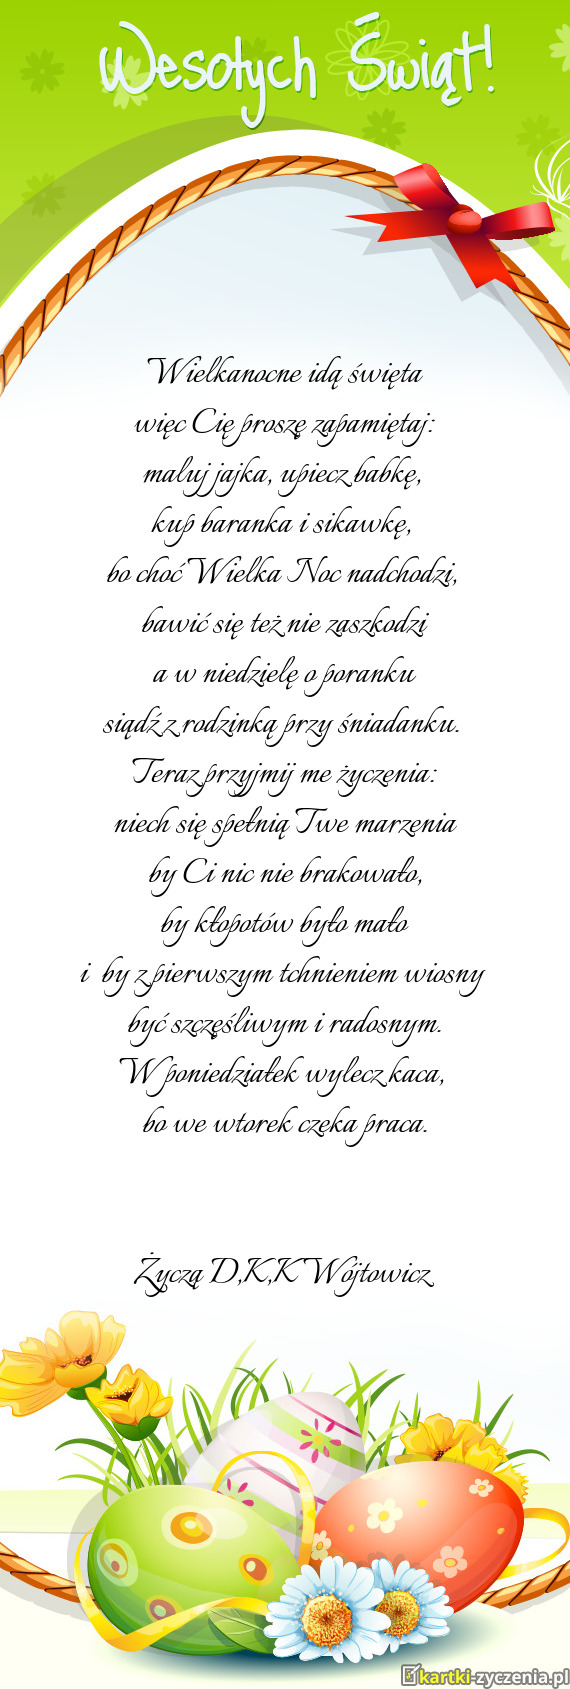 Wesołych Świąt!
Wielkanocne idą święta
więc Cię proszę zapamiętaj:
maluj jajka, upiecz babkę,
kup baranka i sikawkę,
bo choć Wielka Noc nadchodzi,
bawić się też nie zaszkodzi
a w niedzielę o poranku
siądź z rodzinką przy śniadanku.
Teraz przyjmij me życzenia:
niech się spełnią Twe marzenia
by Ci nic nie brakowało,
by kłopotów było mało
i by z pierwszym tchnieniem wiosny
być szczęśliwym i radosnym.
W poniedziałek wylecz kaca,
bo we wtorek czeka praca.
Życzą D,K,K Wójtowicz
kartki-zyczenia.pl